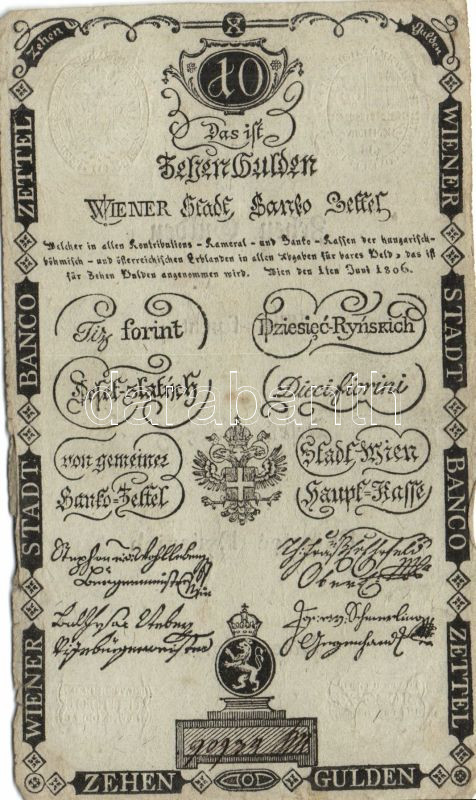 Zehen
X
Gulden
10
Das ist
Zehen Gulden
WIENER Stadt Banko Zettel
Welcher in allen Kontributions - Kameral - und Banko - Kassen der hungarisch-
böhmisch - und österreichischen Erblanden in allen Abgaben für bares Geld, das ist
für Zehen Gulden angenommen wird. Wien den 1ten Juni 1806.
Tiz forint
Dziesięć-Ryńskich
zlatých
Dieci fiorini
von gemeiner
Stadt-Wien
Banko-Zettel
Haupt-Kasse
darabanth
WIENER STADT BANCO ZETTEL
WIENER STADT BANCO ZETTEL
ZEHEN GULDEN